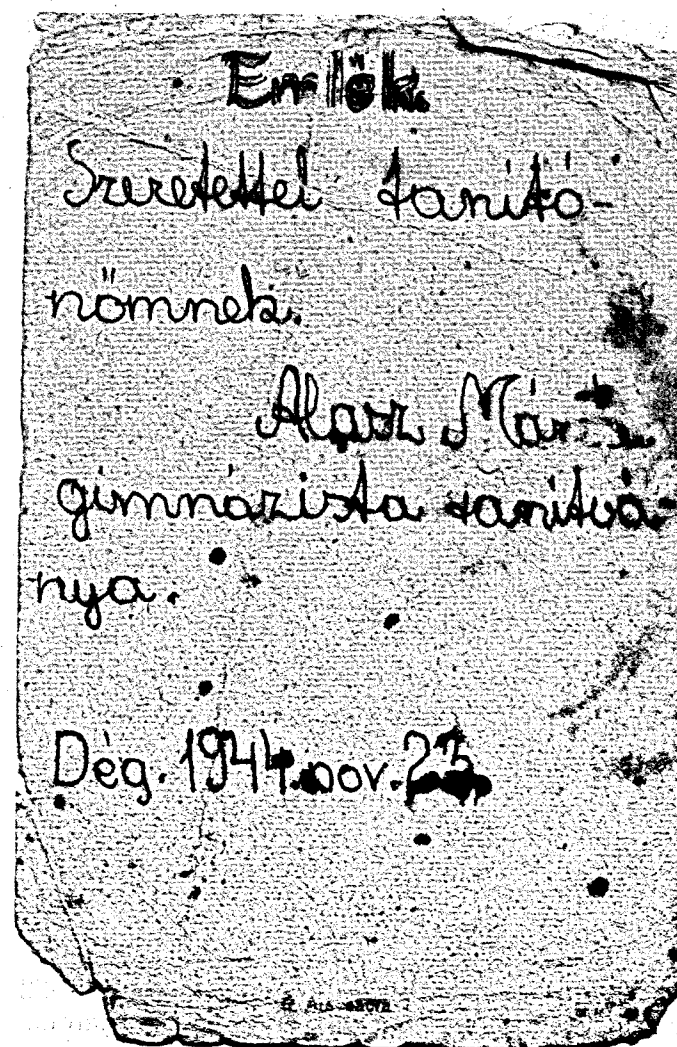 Emlék
Szeretettel tanító-
nőmnek.
Alasz Már
gimnázista tanítvá-
nya.
Dég. 1944. nov. 23.
Ars sacra